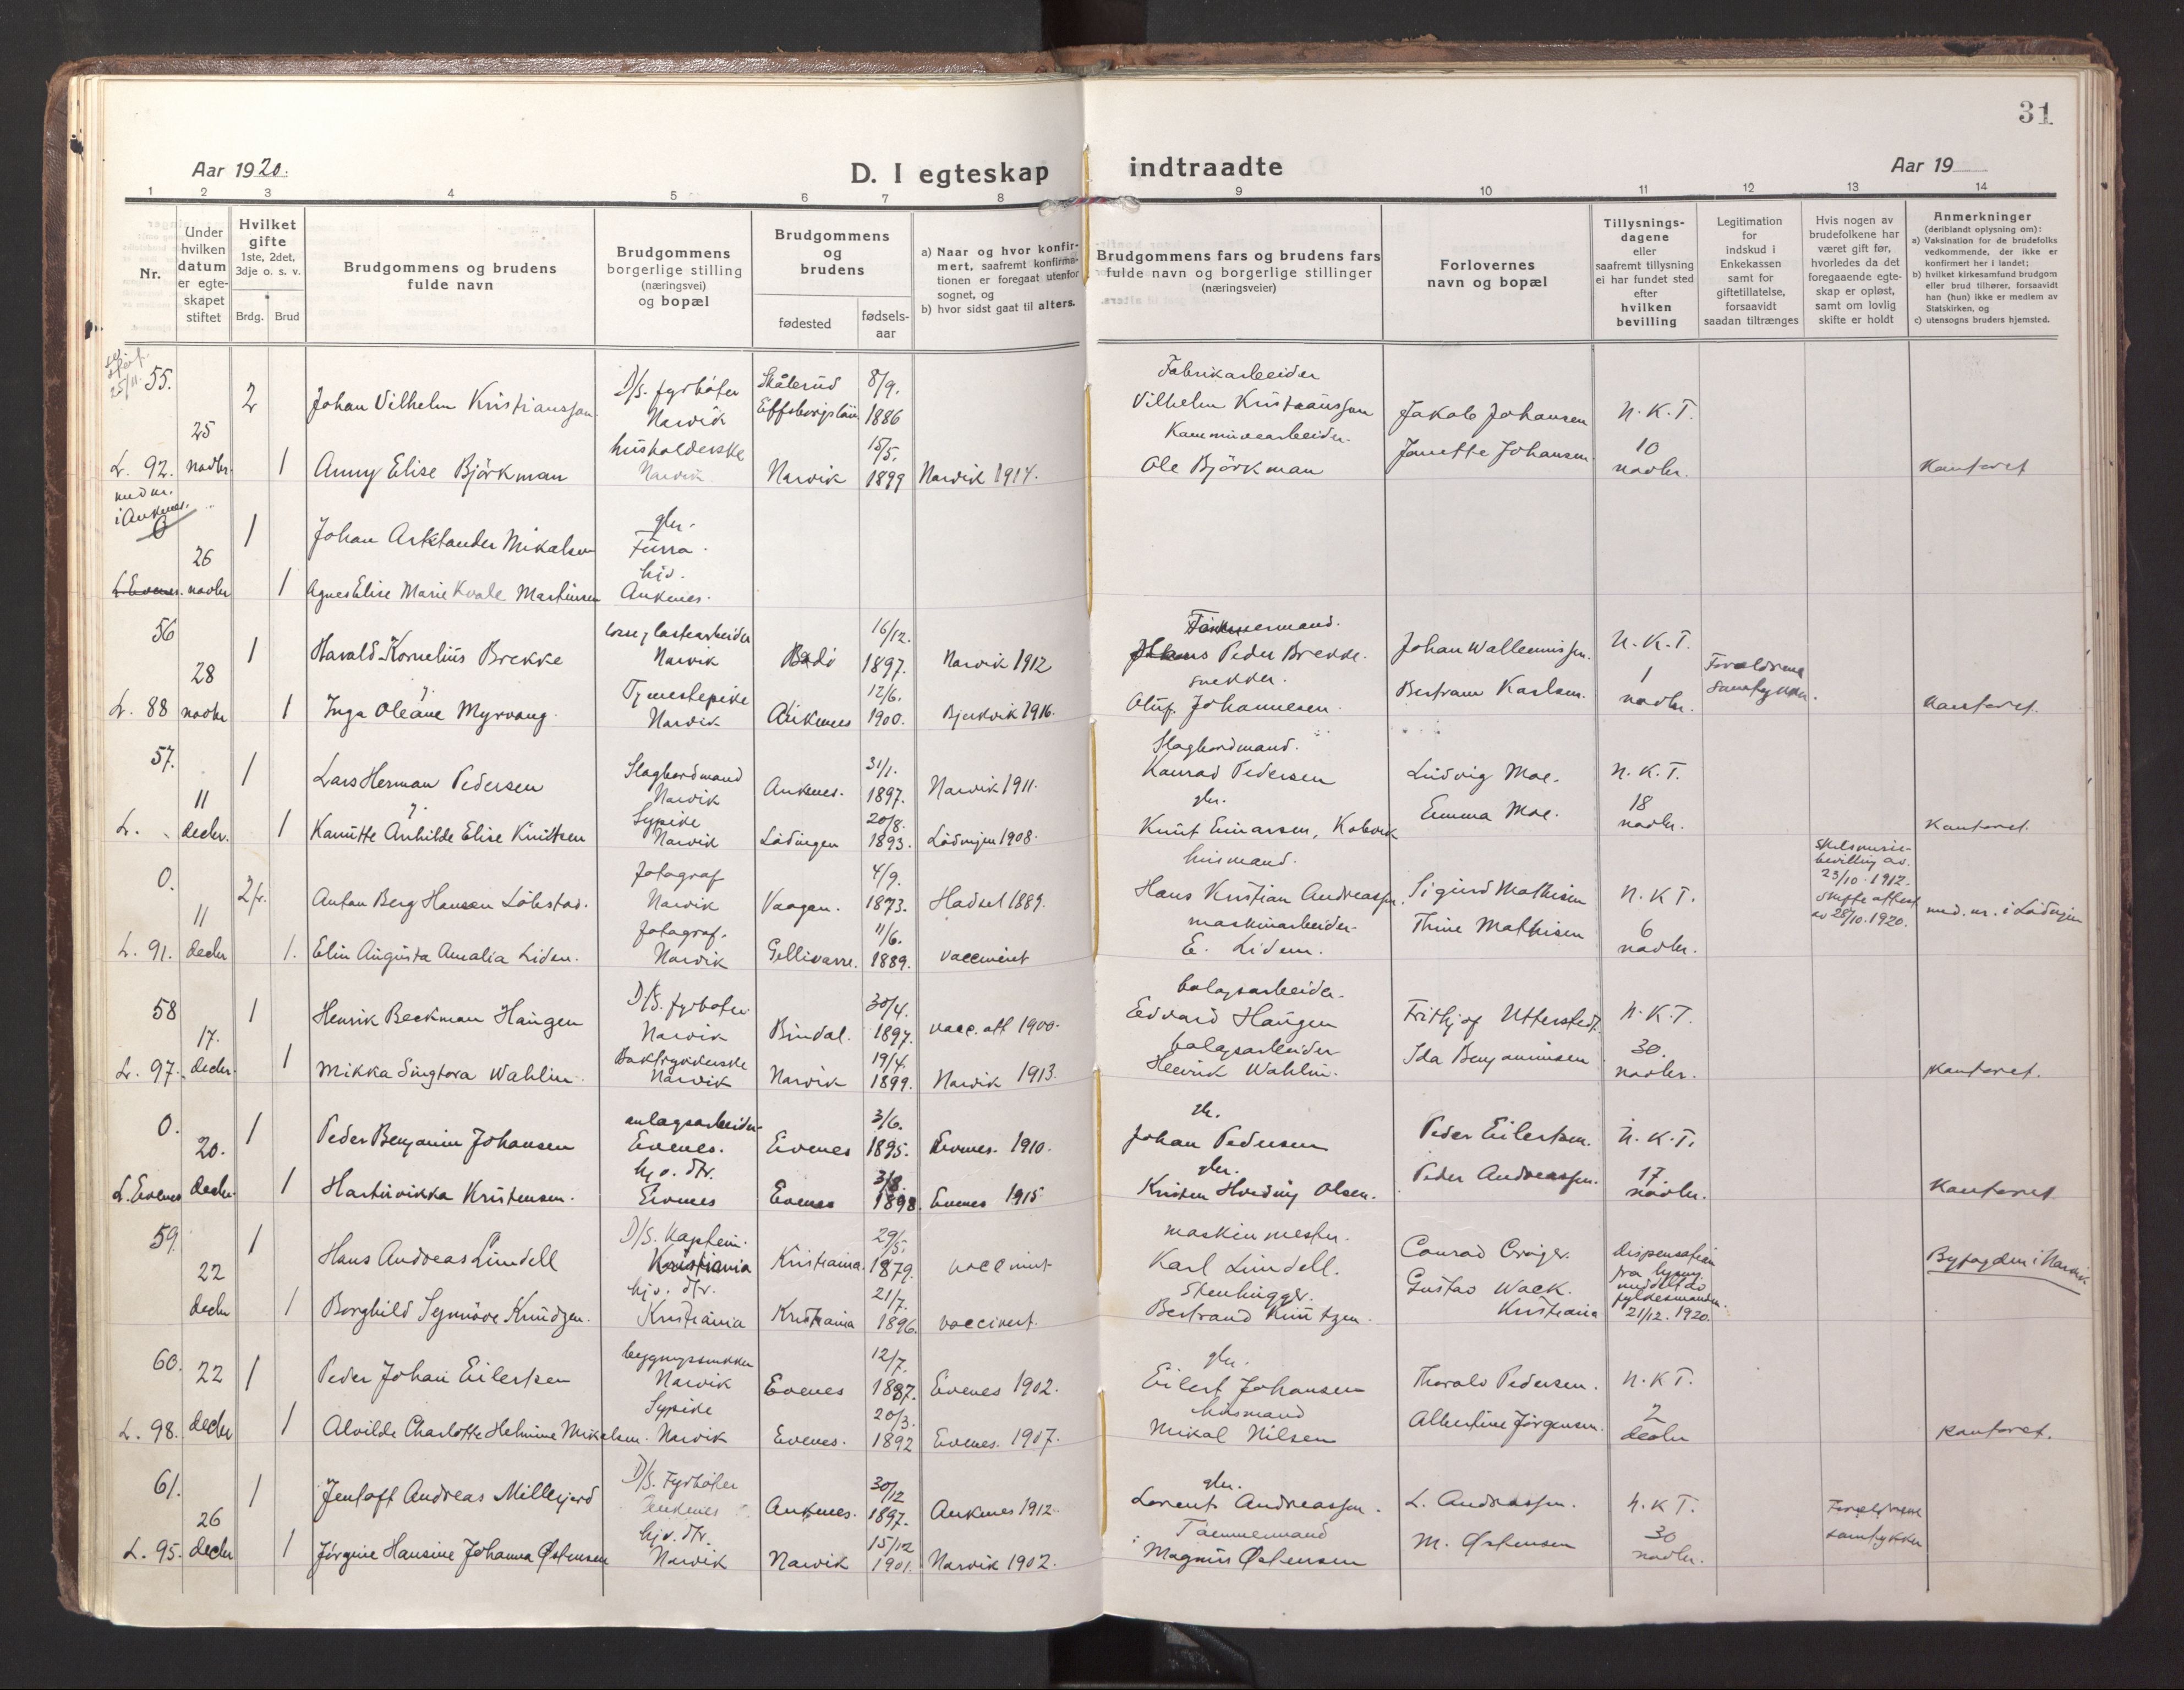 31
Aar 1920.
D. I egteskap indtraadte
Aar 19
1 2 3 4 5 6 7 8 9 10 11 12 13 14
Nr.
Under hvilken datum er egte-skapet stiftet
Hvilket gifte 1ste, 2det, 3dje o. s. v.
Brdg. Brud
Brudgommens og brudens fulde navn
Brudgommens borgerlige stilling (næringsvei) og bopæl
Brudgommens og brudens
fødested
fødsels-aar
a) Naar og hvor konfir-mert, saafremt konfirma-tionen er foregaat utenfor sognet, og
b) hvor sidst gaat til alters.
Brudgommens fars og brudens fars fulde navn og borgerlige stillinger (næringsveier)
Forlovernes navn og bopæl
Tillysnings-dagene eller saafremt tillysning ei har fundet sted efter hvilken bevilling
Legitimation for indskud i Enkekassen samt for giftetillatelse, forsaavidt saadan tiltrænges
Hvis nogen av brudefolkene har været gift før, hvorledes da det foregaaende egte-skap er opløst, samt om lovlig skifte er holdt
Anmerkninger (deriblandt oplysning om):
a) Vaksination for de brudefolks vedkommende, der ikke er konfirmert her i landet;
b) hvilket kirkesamfund brudgom eller brud tilhører, forsaavidt han (hun) ikke er medlem av Statskirken, og
c) utensogns bruders hjemsted.
55. 2 Johan Vilhelm Kristiansson D/S. fyrböter Narvik 8/9. 1886 Fabrikarbeider Vilhelm Kristiansson Jakob Johansen N.K.T.
L. 92. 25 novbr. 1 Anny Elise Björkman husholderske Narvik Narvik 15/5. 1899 Narvik 1914. Ole Björkman Janette Johansen 10 novbr. Kontoret
i Ankenes. 0 26 novbr 1 Johan Mikalsen gbr.
L. Evenes. 1 Agnes Elise Marie Kvale Martinsen Ankenes.
56 28 novbr 1 Harald Kornelius Brekke Narvik Bodö 16/12. 1897. Narvik 1912 Peder Brekke. N.K.T.
L. 88 1 Inga Oleane Myrvang Tjenestepike Narvik Ankenes 12/6. 1900. Bjerkvik 1916. snekker. Oluf Johannesen. Bertram Karlsen. 1 novbr. Forældrene samtykker. Kontoret.
57. 11 decbr. 1 Lars Herman Pedersen Narvik Ankenes. 31/1. 1897. Narvik 1911. Konrad Pedersen Ludvig Moe. N.K.T.
L. 1 Anhilde Elise Knutsen Sypike Narvik Lödingen 20/8. 1893. Lödingen 1908. gbr. Knut Einarsen, Emma Moe. 18 novbr. Kontoret.
0. 11 decbr 2 fr. Anton Berg Hansen Löbstad. fotograf Narvik Vaagan. 4/9. 1873. Hadsel 1889. husmand. Hans Kristian Andreassen Sigurd Mathisen N.K.T. Skilsmisse-bevilling av. 23/10 1912. Skifteattest av 28/10. 1920.
L. 91. 1. Elin Augusta Amalia Liden. fotograf. Narvik Gellivarre. 11/6. 1889. vaccinert maskinarbeider E. Liden. Thine Mathisen 6 novbr.
58 17. decbr. 1 Henrik Beckman Haugen D/S. fyrböter Narvik Bindal. 30/4. 1897. vacc. att 1900. bolagsarbeider. Edvard Haugen Frithjof Utterstedt. N.K.T.
L. 97. 1 Mikka Singtora Wahlin. Narvik Narvik 19/4. 1899. Narvik 1913. bolagsarbeider Henrik Wahlin. Ida Benjaminsen 30. novbr. Kontoret.
0. 20. decbr. 1 Peder Benjamin Johansen anlagsarbeider Evenes. Evenes 3/6. 1895. Evenes. 1910. Johan Pedersen Peder Eilertsen. N.K.T.
L. Evenes 1 Hartuvikka Kristensen. hjv. dtr. Evenes Evenes 3/8. 1898. Evenes 1915 gbr. Kristen Olsen. Peder Andreassen. 17. novbr. Kontoret
59. 22 decbr 1 Hans Andreas Lundell D/S. Kaptein. Kristiania Kristiania. 29/5. 1879. vaccinert maskinmester. Karl Lundell. Dispensation fra lysning meddelt av fylkesmanden. 21/12. 1920. Byfogden i Narvik
1 Borghild Synnöve Knudzen. hjv. dtr. Kristiania Kristiania 21/7. 1896. vaccinert. Stenhugger. Bertrand Knutzen. Gustav Wack. Kristiania
60. 22 decbr 1 Peder Johan Eilertsen Narvik Evenes 12/7. 1887. Evenes 1902. gbr. Eilert Johansen Thoralv Pedersen. N.K.T.
L. 98. 1 Alvilde Charlotte Helmine Mikalsen. Sypike Narvik Evenes. 20/3. 1892 Evenes. 1907. husmand Mikal Nilsen Albertine Jörgensen. 2 decbr Kontoret.
61. 26 decbr 1 Jentoft Andreas Millerjord D/S. Fyrböter Ankenes Ankenes. 30/12 1897. Ankenes 1912. gbr. Lorents Andreassen. L. Andreassen. N.K.T. Forældrene samtykker
L. 95. 1 Jörgine Hansine Johanna Østensen hjv. dtr. Narvik Narvik 15/12 1901. Narvik 1902. Tömmermand Magnus Østensen M. Østensen 30 novbr.